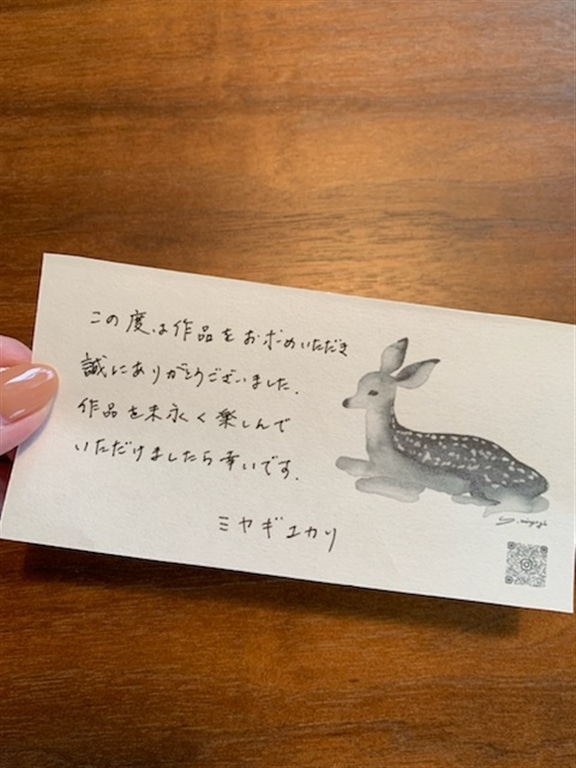 この度は作品をお求めいただき
誠にありがとうございました.
作品を末永く楽しんで
いただけましたら幸いです.
ミヤギユカリ